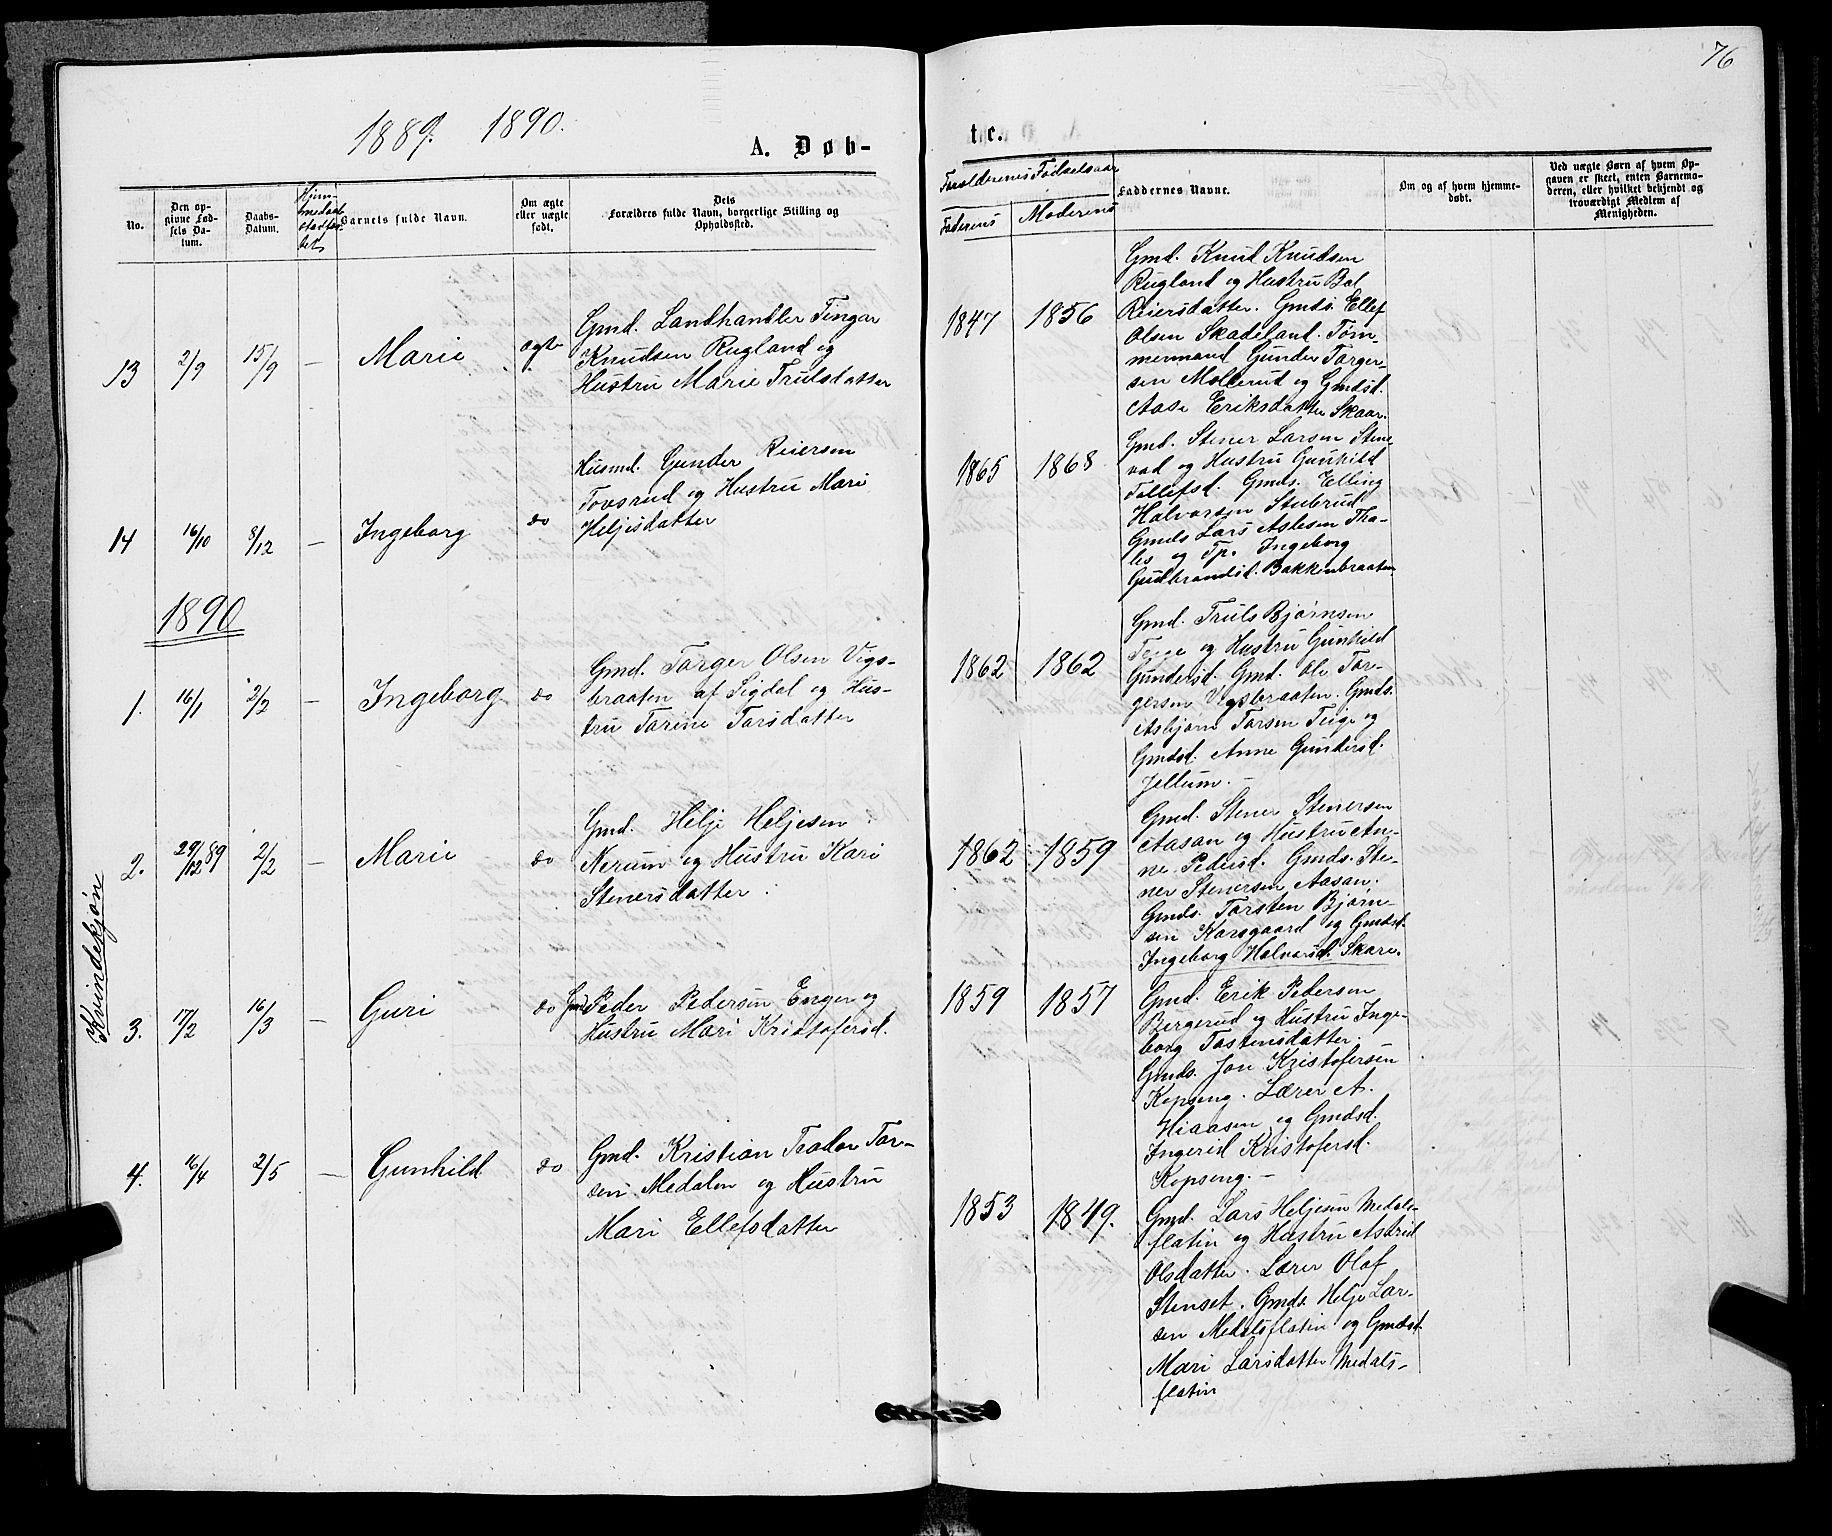 76
1889. 1890.
A. Døb-
te.
No.
Den op-
givne Fød-
sels Da-
tum.
Daabs-
Datum.
Hjem-
medaab
stadfæs-
tet
Barnets fulde Navn.
Om ægte
eller uægte
født.
Dels
Forældres fulde Navn, borgerlige Stilling og
Opholdssted.
Forældrenes Fødselsaar
Faderens
Moderens
Faddernes Navne.
Om og af hvem hjemme-
døbt.
Ved uægte Børn af hvem Op-
gaven er skeet, enten Barnemo-
deren, eller hvilket bekjendt og
troværdigt Medlem af
Menigheden.
13 2/9 15/9 — Marie ægte
Gmd. Landhandler Tingar
Knudsen Rugland og
Hustru Marie Trulsdatter
1847 1856
Gmd. Knud Knudsen
Rugland og Hustru Bol
Reiersdatter. Gmds. Ellef
Olsen Skadeland. Tøm-
mermand Gunder Targer-
sen Mollerud og Gmdsd.
Aase Eriksdatter Skaar.
14 16/10 8/12 — Ingeborg do
Husmd. Gunder Reiersen
Tovsrud og Hustru Mari
Heljesdatter
1865 1868
Gmd. Stener Larsen Stens-
vad og Hustru Gunhild
Tollefsd. Gmds. Elling
Halvorsen Stubrud.
Gmds Lars Aslesen Tha-
les og Tp. Ingeborg
Gudbrandsd. Bakkenbraaten
1890
1. 16/1 2/2 — Ingeborg do
Gmd. Targer Olsen Vigs-
braaten af Sigdal og Hus-
tru Tarine Tarsdatter
1862 1862
Gmd. Truls Bjørnsen
Teige og Hustru Gunhild
Gundersd. Gmd. Ole Tar-
gersen Vigsbraaten. Gmds.
Asbjørn Tarsen Teige og
Gmdsd. Anne Gundersd.
Jellum. —
Kvindekjøn
2. 29/12 89 2/2 — Marie do
Gmd. Helje Heljesen
Nerum og Hustru Kari
Stenersdatter.
1862 1859
Gmd. Stener Stenersen
Aasan og Hustru An-
ne Pedersd. Gmds. Ste-
ner Stenersen Aasan.
Gmds. Torsten Bjørn-
sen Korsgaard og Gmdsd.
Ingeborg Halvorsd. Skare.
3. 17/2 16/3 — Guri do
Gmd Peder Pedersen Enger og
Hustru Mari Kristofersd.
1859 1857
Gmd. Erik Pedersen
Bergerud og Hustru Inge-
borg Tostensdatter.
Gmds. Jon Kristofersen
Kopseng. Lærer A.
Hiaasen og Gmdsd.
Ingerid Kristofersd.
Kopseng. —
4. 16/4 2/5 — Gunhild do
Gmd. Kristian Trador Tor-
sen Medalen og Hustru
Mari Ellefsdatter
1853 1849.
Gmd. Lars Heljesen Medals-
flatin og Hustru Astrid
Olsdatter. Lærer Olaf
Stenset. Gmds. Helje Lar-
sen Medalsflatin og Gmdsd.
Mari Larsdatter Medals-
flatin